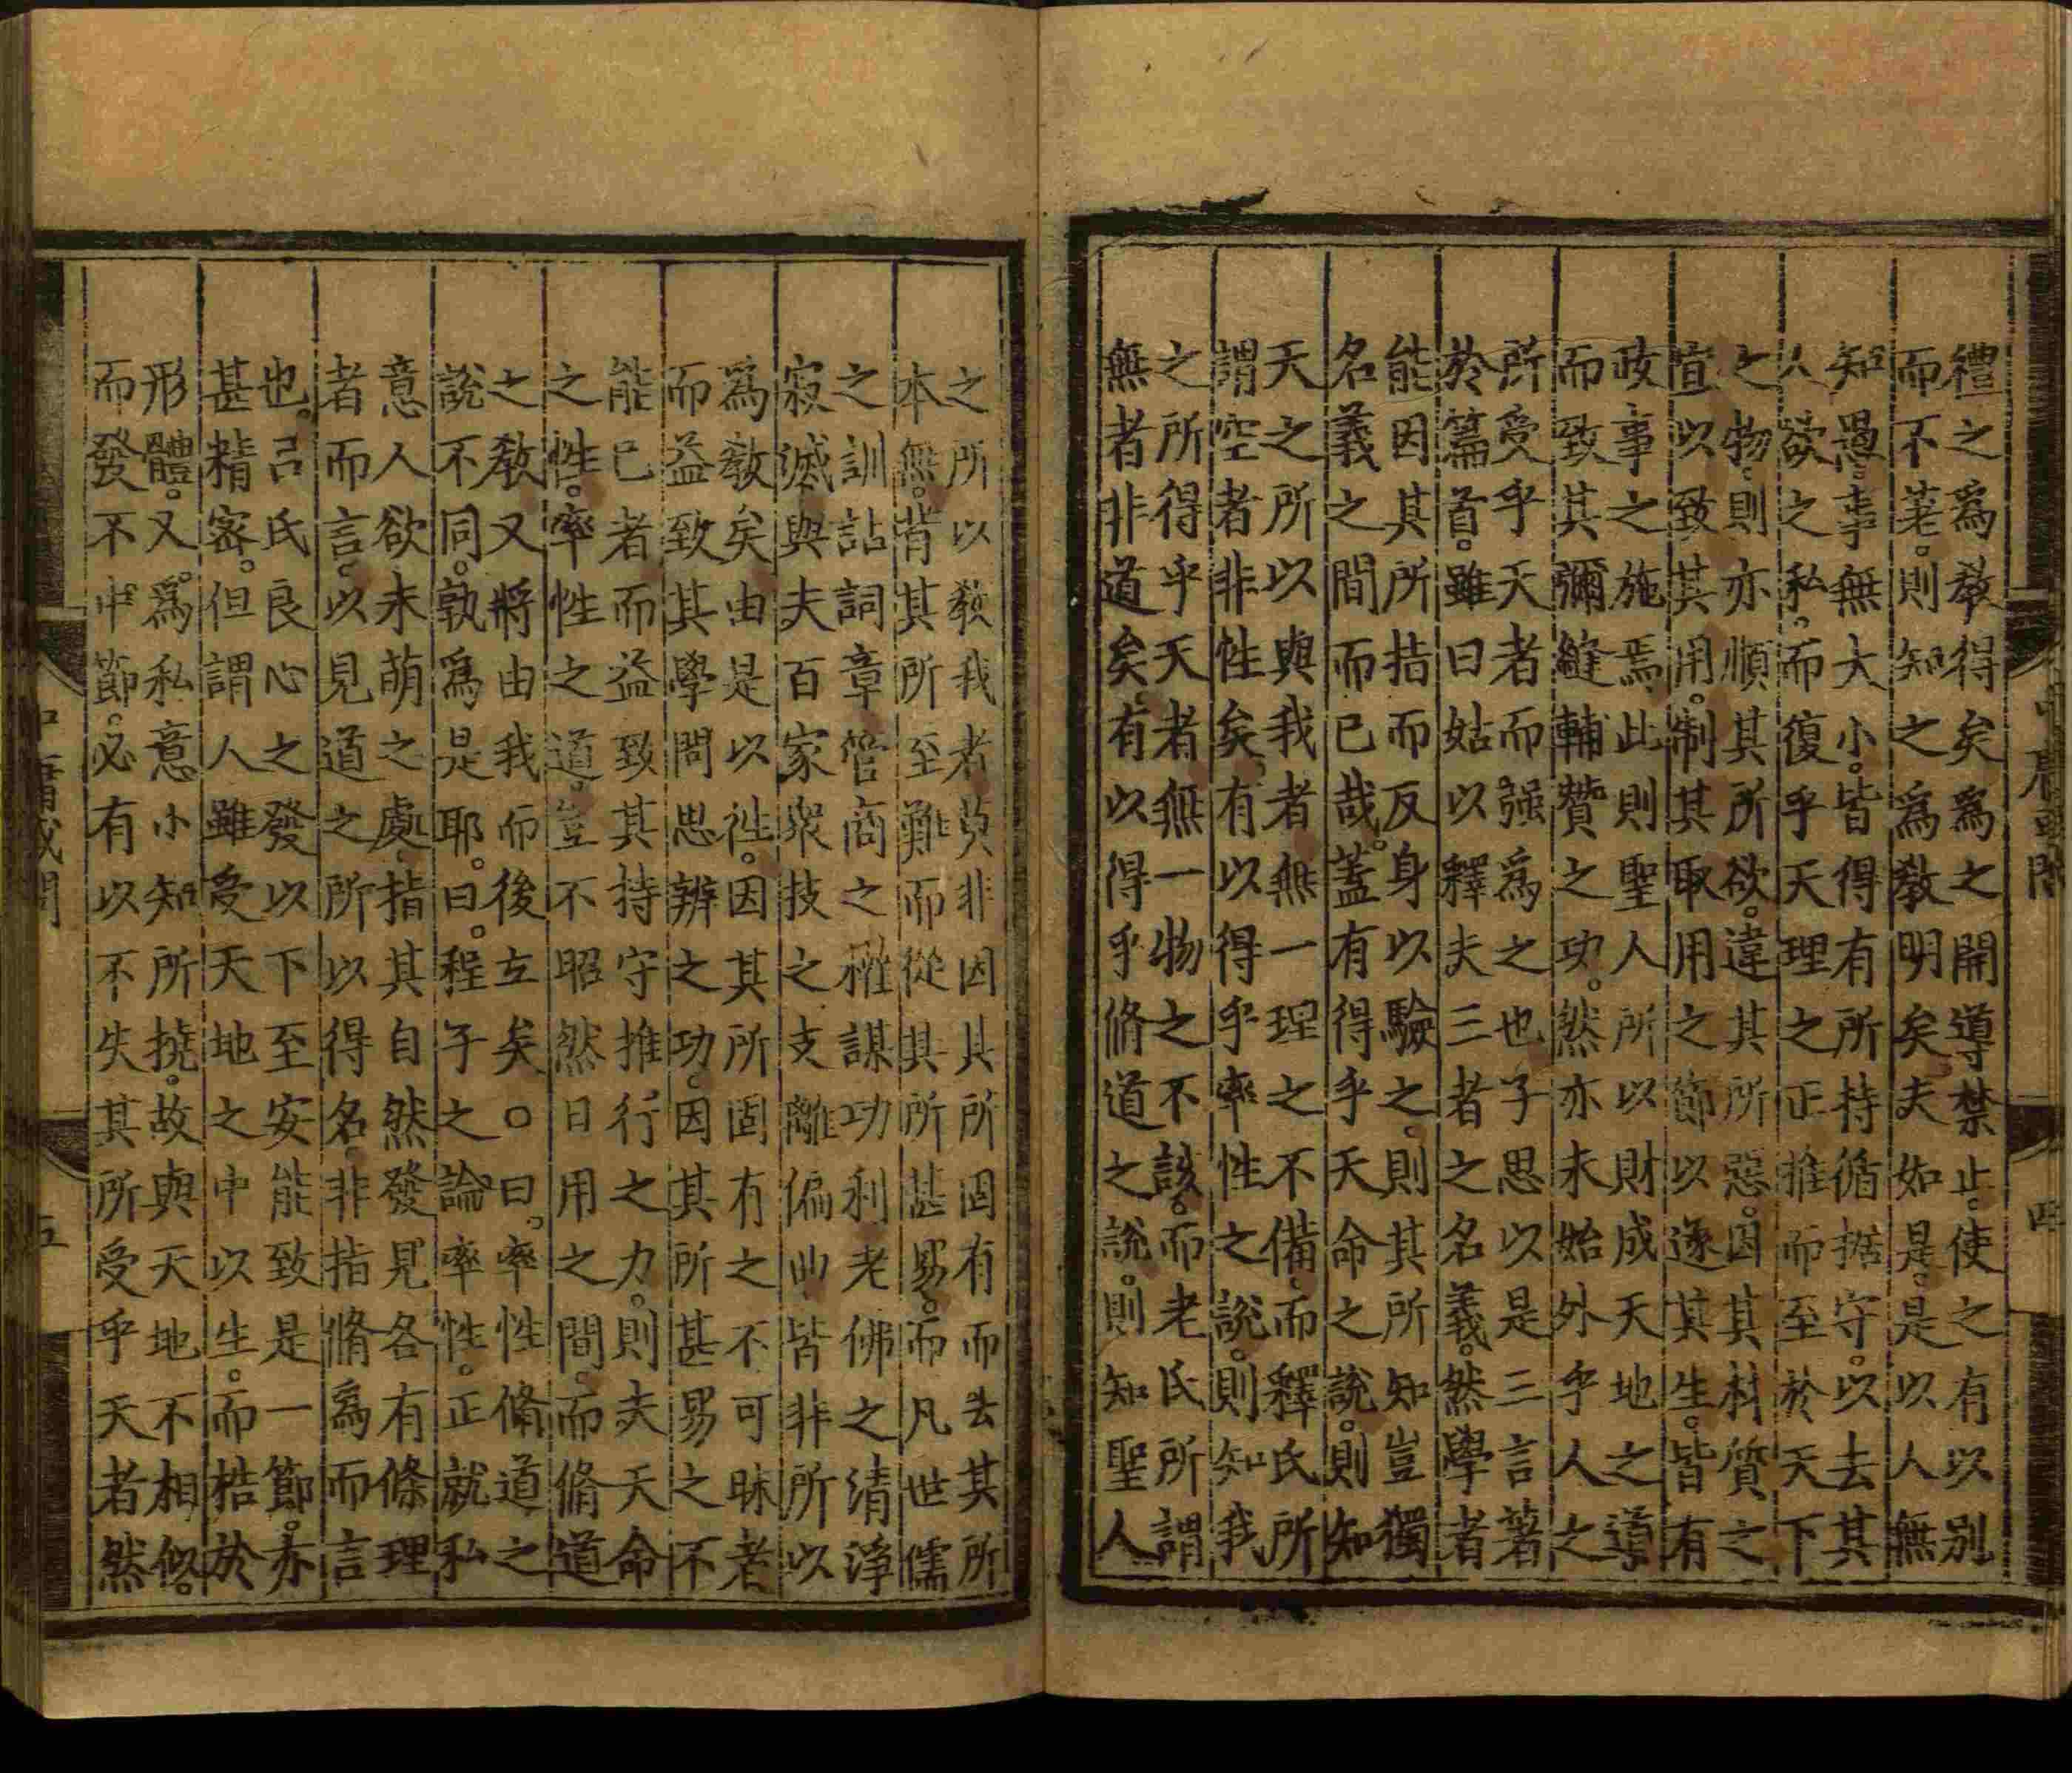 禮之爲敎得矣爲之開導禁止。使之有以別
而不差。則知之爲敎明矣夫如是。是以人無
知愚。事無大小。皆得有所持循据守。以去其
人欲之私。而復乎天理之正推而至於天下
之物。則亦順其所欲。違其所惡。因其材質之
宜以致其用。制其取用之節以遂其生。皆有
政事之施焉此則聖人所以財成天地之道
而致其彌縫輔贊之功。然亦未始外乎人之
所受乎天者而强爲之也子思以是三言著
於篇首。雖曰姑以釋夫三者之名義。然學者
能因其所指而反身以驗之。則其所知豈獨
名義之間而已哉。蓋有得乎天命之說。則知
天之所以與我者無一理之不備。而釋氏所
謂空者非性矣。有以得乎率性之說。則知我
之所得乎天者無一物之不該。而老氏所謂
無者非道矣。有以得乎脩道之說。則知聖人
之所以敎我者莫非因其所固有而去其所
本無。背其所至難而從其所甚易。而凡世儒
之訓詁詞章管商之權謀功利老佛之清淨
寂滅與夫百家衆技之支離偏曲皆非所以
爲敎矣由是以徃。因其所固有之不可昧者
而益致其學問思辨之功。因其所甚易之不
能已者而益致其持守推行之力。則夫天命
之性。率性之道。豈不昭然日用之間。而脩道
之敎又將由我而後立矣○曰。率性脩道之
說不同。孰爲是耶。曰。程子之論率性。正就私
意人欲未萌之處。指其自然發見各有條理
者而言。以見道之所以得名。非指脩爲而言
也。呂氏良心之發以下至安能致是一節。亦
甚精密。但謂人雖受天地之中以生。而梏於
形體。又爲私意小知所撓。故與天地不相似。
而發不中節。必有以不失其所受乎天者然
中庸或問 五